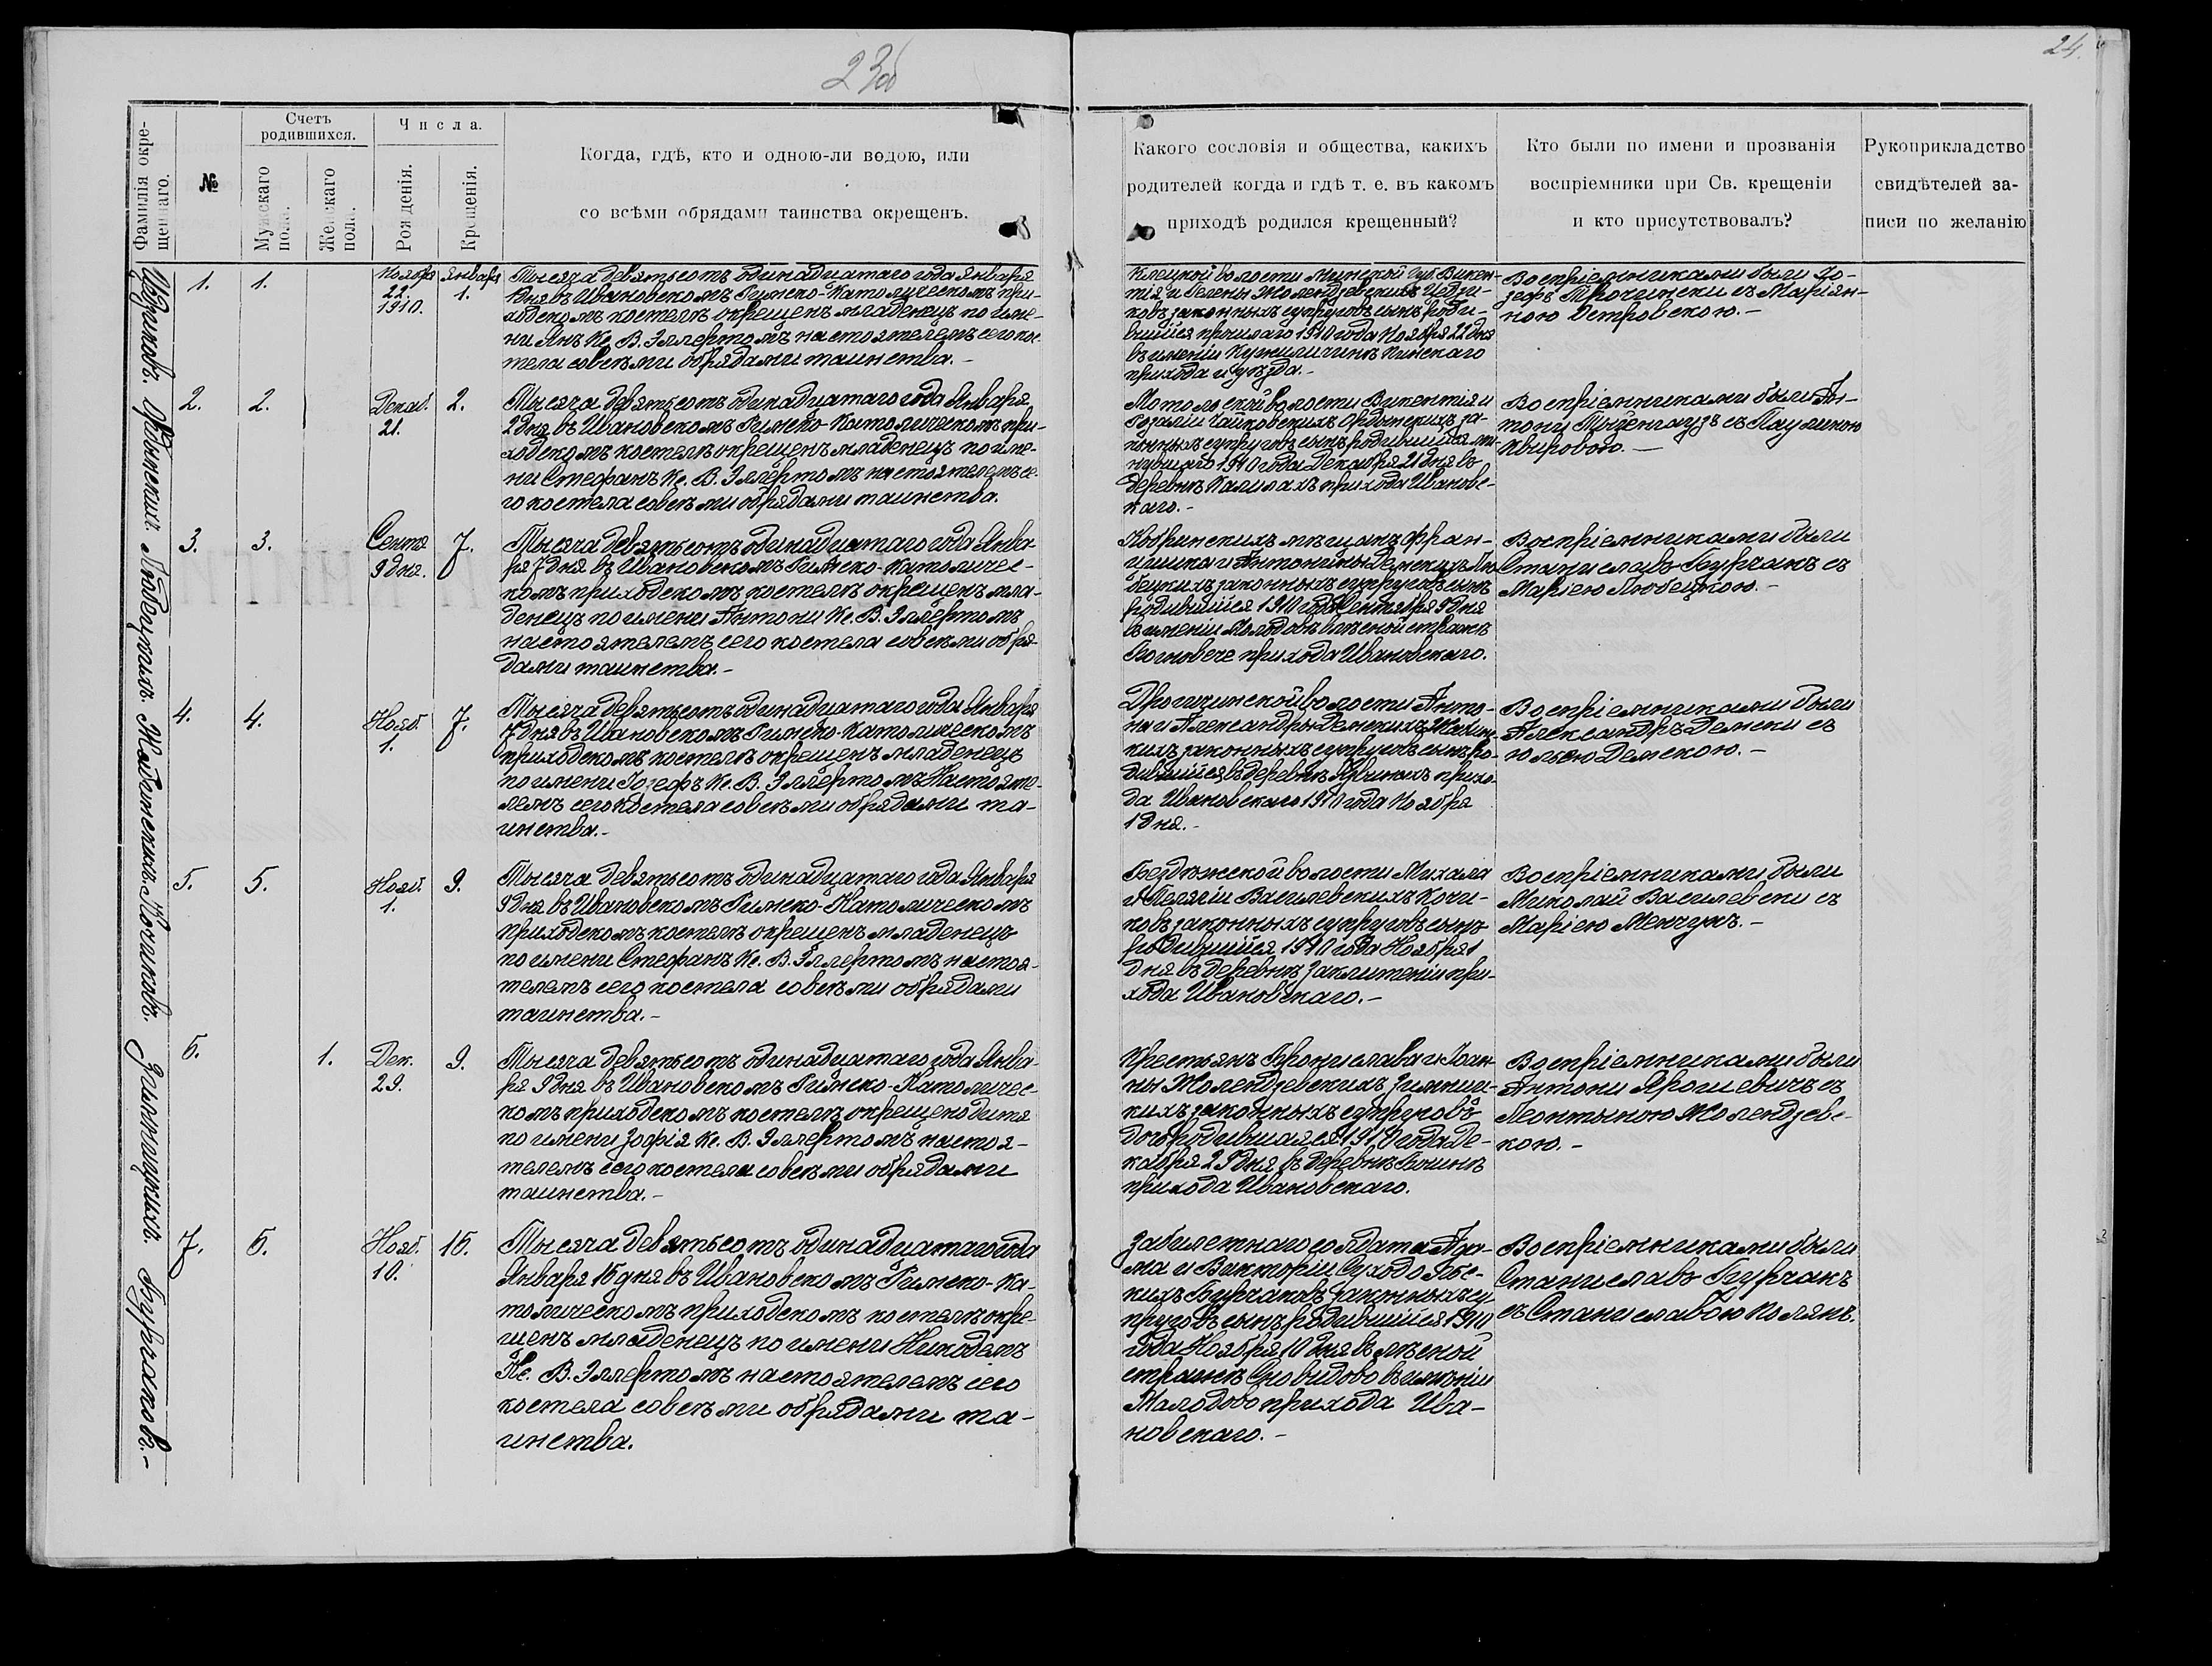 23об
24.
Фамилія окре-
щеннаго.
№
Счетъ
родившихся.
Мужскаго
пола.
Женскаго
пола.
Числа.
Рожденія.
Крещенія.
Когда, гдѣ, кто и одною-ли водою, или
со всѣми обрядами таинства окрещенъ.
Какого сословія и общества, какихъ
родителей когда и гдѣ т. е. въ какомъ
приходѣ родился крещенный?
Кто были по имени и прозванія
воспріемники при Св. крещеніи
и кто присутствовалъ?
Рукоприкладство
свидѣтелей за-
писи по желанію
Ордынскихъ. Любецкихъ. Жабинскихъ. Кочиковъ. Зимницкихъ. Бурчаковъ.-
1.
1.
Ноября
22.
1910.
Января
1.
Тысяча девятьсотъ одинадцатаго года Января
1 дня въ Ивановскомъ Римско-Католическомъ при-
ходскомъ костелѣ окрещенъ младенецъ по име-
ни Янъ Кс. В. Эллертомъ настоятелемъ сего кос-
тела совсѣми обрядами таинства.-
Клецкой волости Минской губ. Викен-
тія и Гелены Жолендзевскихъ
ковъ законныхъ супруговъ сынъ роди-
вшійся прошлаго 1910 года Ноября 22 дня
въ имѣніи Кужеличинѣ Пинскаго
прихода и уѣзда.-
Воспріемниками были Іо-
зефъ Трочински съ Маріян-
ною Петровскою.-
2.
2.
Декаб.
21.
2.
Тысяча девятьсотъ одинадцатаго года Января
2 дня въ Ивановскомъ Римско-Католическомъ при-
ходскомъ костелѣ окрещенъ младенецъ по име-
ни Стефанъ Кс. В. Эллертомъ настоятелемъ се-
го костела совсѣми обрядами таинства.
Мотольской волости Викентія и
Розаліи Чайковскихъ Ордынскихъ за-
конныхъ супруговъ сынъ родившійся ми-
нувшаго 1910 года Декабря 21 дня въ
деревнѣ Калилахъ прихода Ивановс-
каго.-
Воспріемниками были Ан-
тони Тышенгаузъ съ Паулиною
Квировою.-
3.
3.
Сентя.
9 дня.
7.
Тысяча девятьсотъ одинадцатаго года Янва-
ря 7 дня въ Ивановскомъ Римско-Католичес-
комъ приходскомъ костелѣ окрещенъ мла-
денецъ по имени Антони Кс. В. Эллертомъ
настоятелемъ сего костела совсѣми обря-
дами таинства.-
Кобринскихъ мѣщанъ Фран-
цишка и Антонины Демскихъ Лю-
бецкихъ законныхъ супруговъ сынъ
родившійся 1910 года Сентября 9 дня
въ имѣніи Молодовѣ въ лѣсной стражѣ
прихода Ивановскаго.
Воспріемниками были
Станиславъ Бурчакъ съ
Маріею Любецкою.-
4.
4.
Нояб.
1.
7.
Тысяча девятьсотъ одинадцатаго года Января
7 дня въ Ивановскомъ Римско-Католическомъ
приходскомъ костелѣ окрещенъ младенецъ
по имени Іозефъ Кс. В. Эллертомъ Настояте-
лемъ сего костела совсѣми обрядами та-
инства.-
Дрогичинской волости Анто-
на и Александры Демскихъ Жабин-
скихъ законныхъ супруговъ сынъ ро-
дившійся въ деревнѣ прихо-
да Ивановскаго 1910 года Ноября
1 дня.-
Воспріемниками были
Александръ Демски съ
Юльею Демскою.-
5.
5.
Нояб.
1.
9.
Тысяча девятьсотъ одинадцатаго года Января
9 дня въ Ивановскомъ Римско-Католическомъ
приходскомъ костелѣ окрещенъ младенецъ
по имени Стефанъ Кс. В. Эллертомъ настоя-
телемъ сего костела совсѣми обрядами
таинства.-
Бездѣжской волости Михала
и Пелягіи Василевскихъ Кочи-
ковъ законныхъ супруговъ сынъ
родившійся 1910 года Ноября 1
дня въ деревнѣ при-
хода Ивановскаго.-
Воспріемниками были
Миколай Василевски съ
Маріею Менчукъ.-
6.
1.
Дек.
29.
9.
Тысяча девятьсотъ одинадцатаго года Янва-
ря 9 дня въ Ивановскомъ Римско-Католичес-
комъ приходскомъ костелѣ окрещено дитя
по имени Зофія Кс. В. Эллертомъ настоя-
телемъ сего костела совсѣми обрядами
таинства.-
Крестьянъ Бронислава и Іоан-
ны Жолендзевскихъ Зимниц-
кихъ законныхъ супруговъ
дочь родившаяся 1910 года Де-
кабря 29 дня въ деревнѣ
прихода Ивановскаго.
Воспріемниками были
Антони Ярошевичъ съ
Леонтыною Жолендзевс-
кою.-
7.
6.
Нояб.
10.
16.
Тысяча девятьсотъ одинадцатаго года
Января 16 дня въ Ивановскомъ Римско-Ка-
толическомъ приходскомъ костелѣ окре-
щенъ младенецъ по имени Никодемъ
Кс. В. Эллертомъ настоятелемъ сего
костела совсѣми обрядами та-
инства.
Забилетнаго солдата Ада-
ма и Викторіи Суходольс-
кихъ Бурчаковъ законныхъ су-
пруговъ сынъ родившійся 1910
года Ноября 10 дня въ лѣсной
стражѣ Сновидово въ имѣніи
Малодово прихода Ива-
новскаго.-
Воспріемниками были
Станиславъ Бурчакъ
съ Станиславою Полякъ.